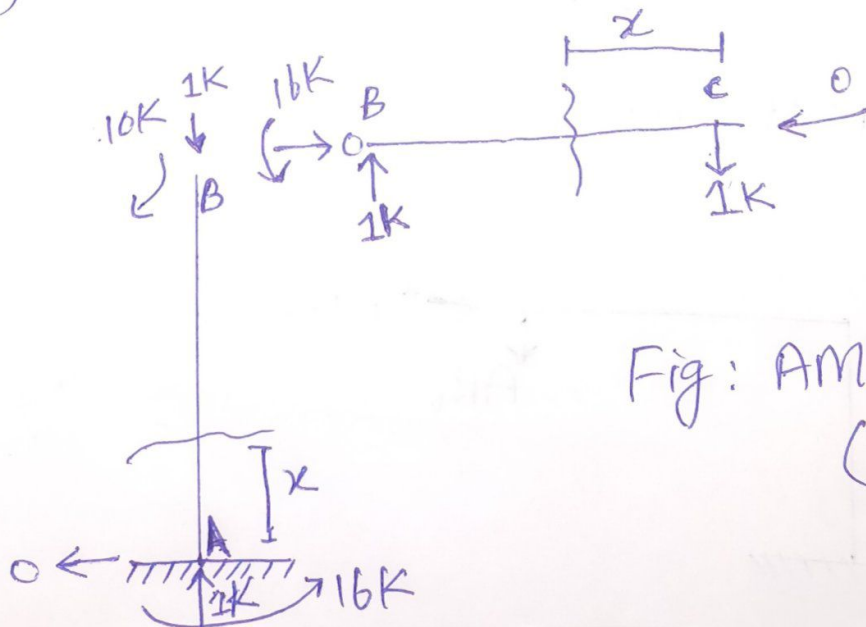 x
1K 16K B C 0
10K
B 1K 1K
Fig: AM
x
A
0 1K 16K